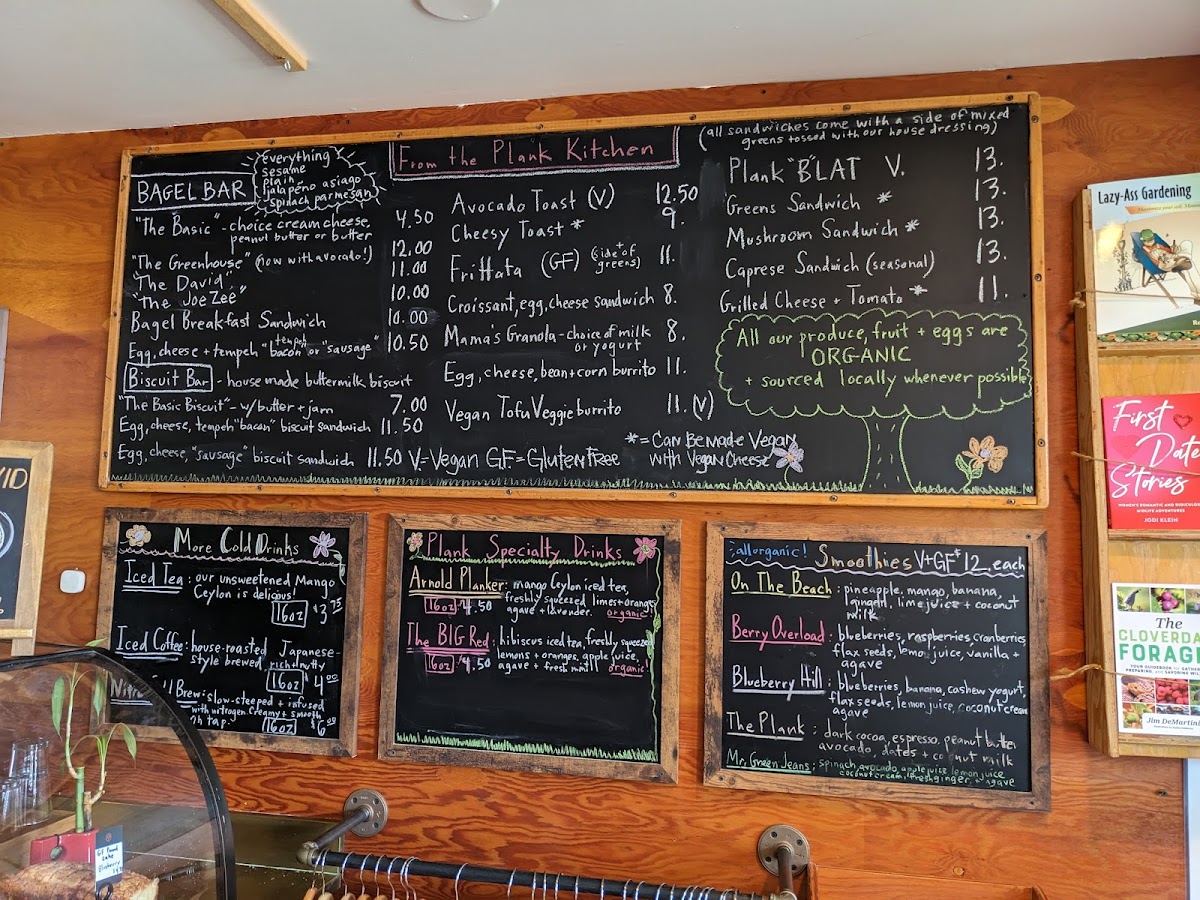 BAGEL BAR
everything
sesame
plain
jalapeño asiago
spinach parmesan
"The Basic" - choice cream cheese, 4.50
peanut butter or butter
"The Greenhouse" (now with avocado!) 12.00
"The David" 11.00
"The Joe Zee" 10.00
Bagel Breakfast Sandwich 10.00
Egg, cheese + tempeh "bacon" or "sausage" 10.50
tempeh
Biscuit Bar - house made buttermilk biscuit
"The Basic Biscuit" - w/ butter + jam 7.00
Egg, cheese, tempeh "bacon" biscuit sandwich 11.50
Egg, cheese, "sausage" biscuit sandwich 11.50
From the Plank Kitchen
Avocado Toast (V) 12.50
Cheesy Toast * 9.
Frittata (GF) (side of greens) + 11.
Croissant, egg, cheese sandwich 8.
Mama's Granola - choice of milk 8.
or yogurt
Egg, cheese, bean + corn burrito 11.
Vegan Tofu Veggie burrito 11. (V)
V = Vegan GF = Gluten Free
* = Can Be made Vegan
with Vegan Cheese
(all sandwiches come with a side of mixed
greens tossed with our house dressing)
Plank "B"LAT V. 13.
Greens Sandwich * 13.
Mushroom Sandwich * 13.
Caprese Sandwich (seasonal) 13.
Grilled Cheese + Tomato * 11.
All our produce, fruit + eggs are
ORGANIC
+ sourced locally whenever possible
More Cold Drinks
Iced Tea: our unsweetened Mango
Ceylon is delicious!
16oz $3.75
Iced Coffee: house-roasted Japanese-
style brewed, rich + nutty
16oz $4.00
Brew: slow-steeped + infused
with nitrogen. Creamy + smooth
on tap. 16oz $6
Plank Specialty Drinks
Arnold Planker: mango Ceylon iced tea,
freshly squeezed limes + orange,
16oz $4.50 agave + lavender. organic!
The BIG Red: hibiscus iced tea, freshly squeezed
lemons + oranges, apple juice,
16oz $4.50 agave + fresh mint organic!
all organic! Smoothies V+GF* 12. each
On The Beach: pineapple, mango, banana,
lime juice + coconut
milk
Berry Overload: blueberries, raspberries, cranberries
flax seeds, lemon juice, vanilla +
agave
Blueberry Hill: blueberries, banana, cashew yogurt,
flax seeds, lemon juice, coconut cream
agave
The Plank: dark cocoa, espresso, peanut butter
avocado, dates + coconut milk
Mr. Green Jeans: spinach, avocado, apple juice, lemon juice
coconut cream, fresh ginger, + agave
Lazy-Ass Gardening
First
Date
Stories
WOMEN'S ROMANTIC AND RIDICULOUS
MIDLIFE ADVENTURES
JODI KLEIN
The
CLOVERDALE
FORAGE
YOUR GUIDEBOOK
PREPARING, AND SAVORING
Jim DeMartini